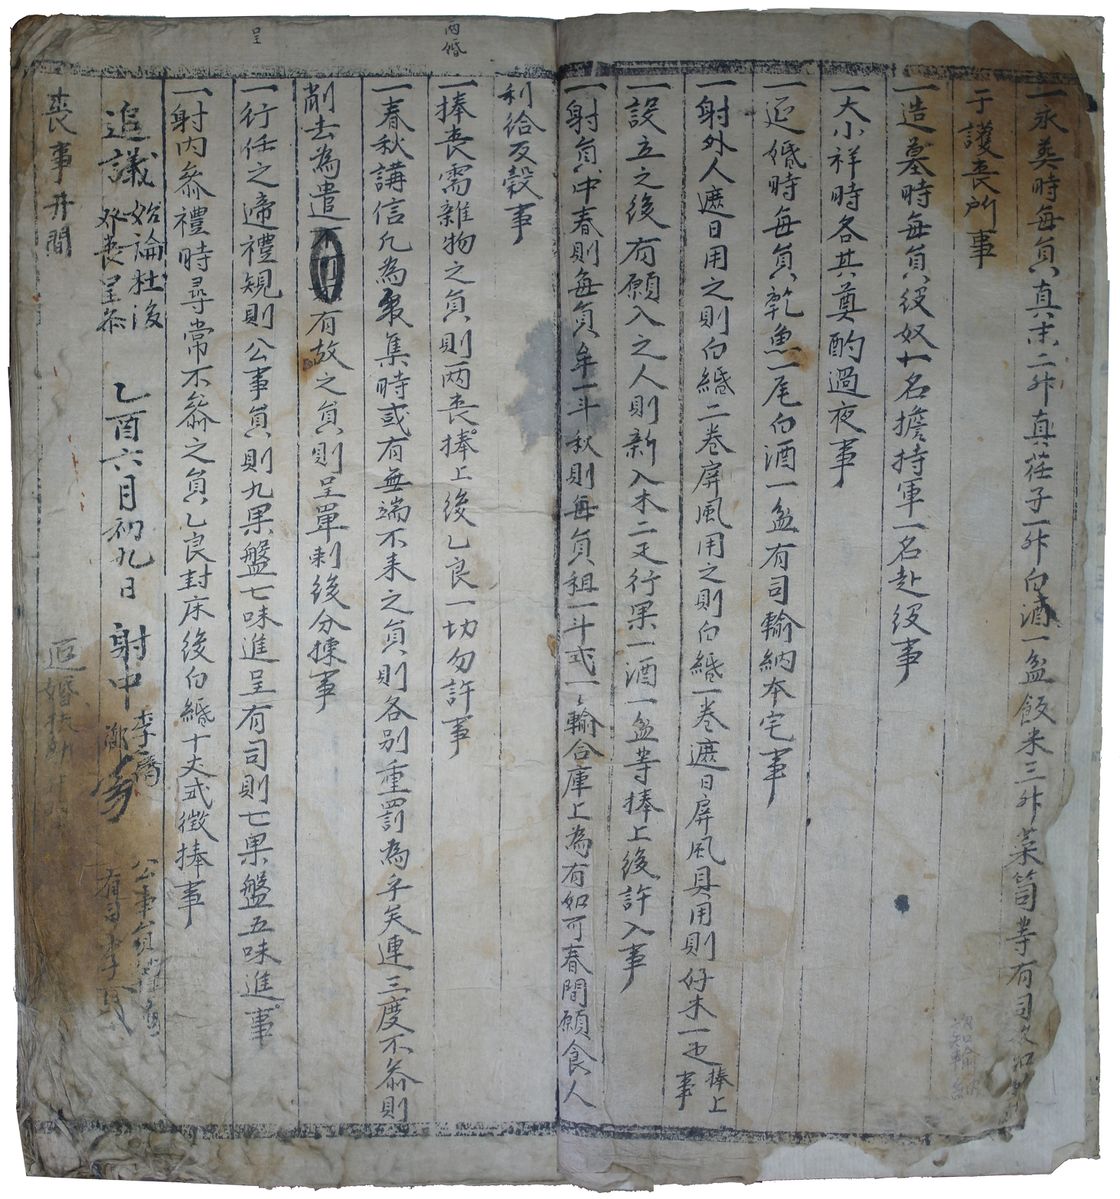 一永葬時每員真末二升真荏子一升白酒一盆飯米三升菜筍等有司
于護喪所事
一造墓時每員役奴一名擔持軍一名赴役事
一大小祥時各其奠酌過夜事
一迎婚時每員乾魚一尾白酒一盆有司輸納本宅事
一射外人遮日用之則白紙二卷屏風用之則白紙一卷遮日屏風具用則好木一疋捧上事
一設立之後有願入之人則新入木二疋行果一酒一盆等捧上後許入事
一射員中春則每員牟一斗秋則每員租一斗式一〻輸合庫上為有如可春間願食人
利給反穀事
一捧喪需雜物之員則兩喪捧上後乙良一切勿許事
一春秋講信凡為聚集時或有無端不來之員則各別重罰為乎矣連三度不參則
削去為遣 有故之員則呈單刺後分揀事
一行任之啻禮規則公事員則九果盤七味進呈有司則七果盤五味進事
一射內參禮時尋常不參之員乙良封床後白紙十丈式徵捧事
追議 始論杜後 發喪呈恭 乙酉六月初九日 射中 李 公事員 有司李
喪事井間 迎婚
呈
內婚